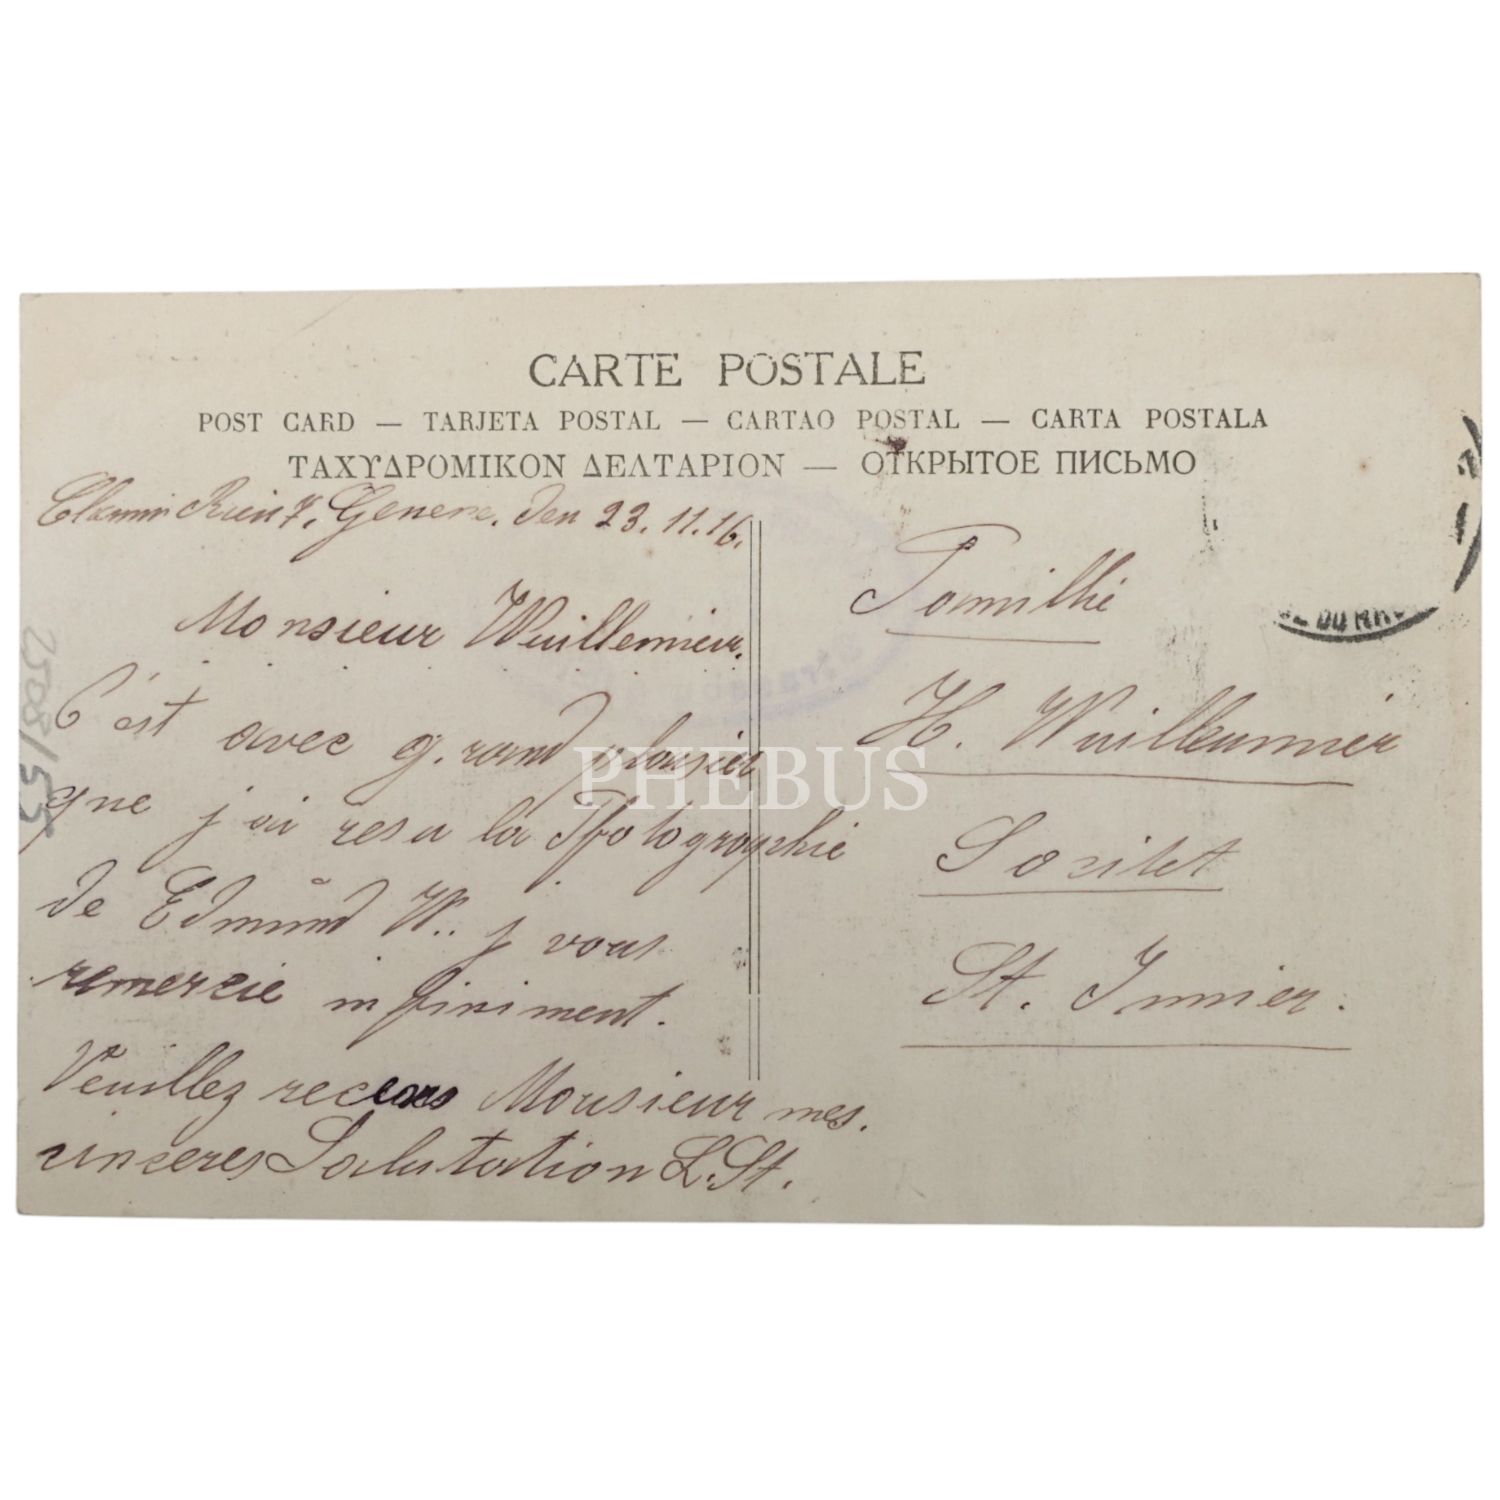 CARTE POSTALE
POST CARD — TARJETA POSTAL — CARTAO POSTAL — CARTA POSTALA
ΤΑΧΥΔΡΟΜΙΚΟΝ ΔΕΛΤΑΡΙΟΝ — ОТКРЫТОЕ ПИСЬМО
Rieu 7, Geneve, den 23.11.16.
Monsieur Wuillemieur.
C'est avec grand plaisier
que j'ai resu la Pfotographie
de Edmund W.. j vous
remercie infiniment.
Veuillez Monsieur mes.
sinseres Salutation L. St.
Familhé
H. Wuilleumier
St. Immier.
2508/55
PHEBUS